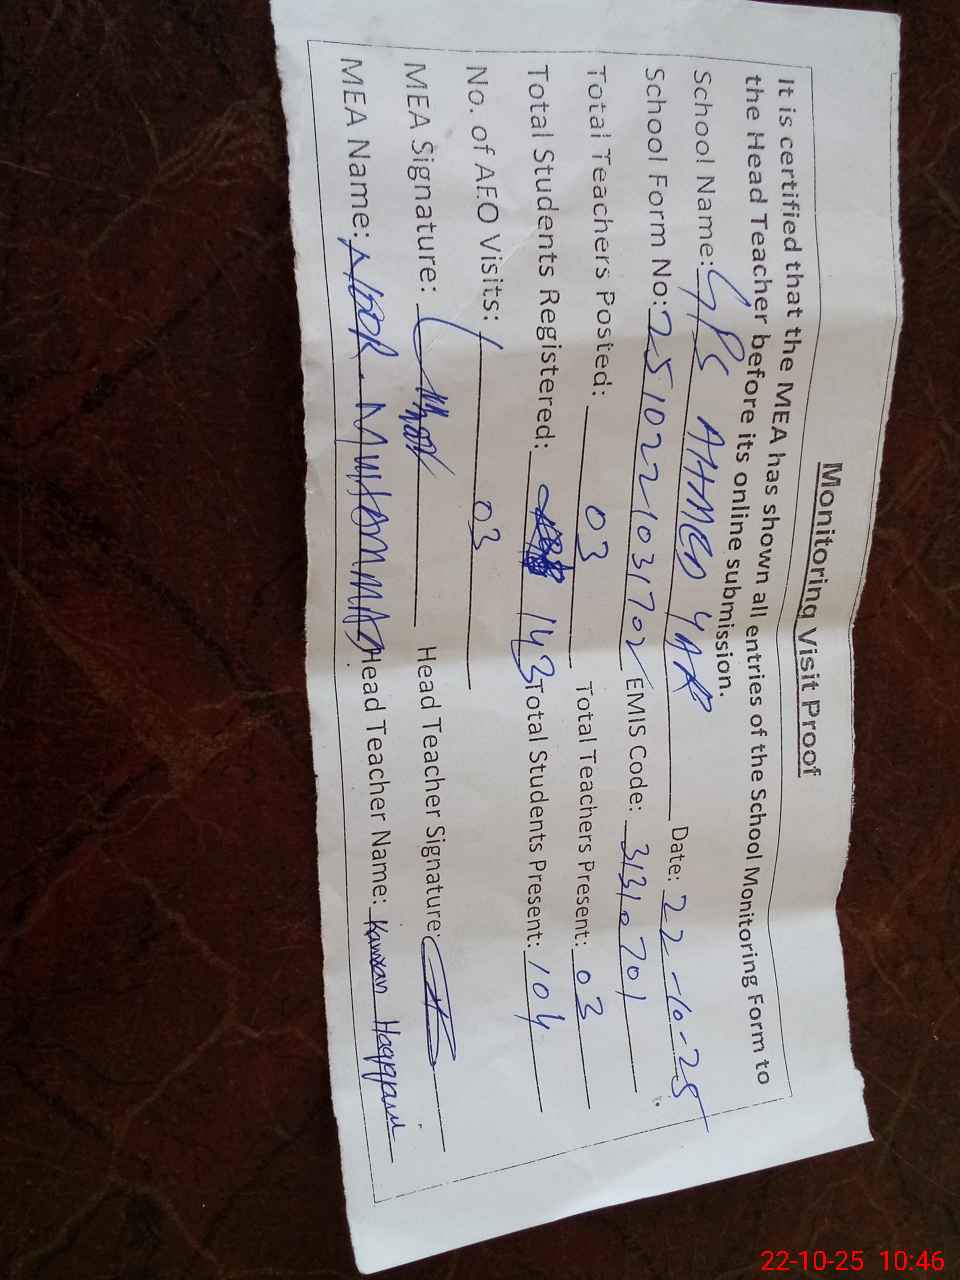 Monitoring Visit Proof
It is certified that the MEA has shown all entries of the School Monitoring Form to
the Head Teacher before its online submission.
School Name: GPS AHMED YAR Date: 22-10-25
School Form No: 2510221031702 EMIS Code: 31310701
Total Teachers Posted: 03 Total Teachers Present: 03
Total Students Registered: 143 Total Students Present: 104
No. of AEO Visits: 03
MEA Signature: Head Teacher Signature:
MEA Name: NOOR. MUHAMMAD Head Teacher Name: Kamran
22-10-25 10:46